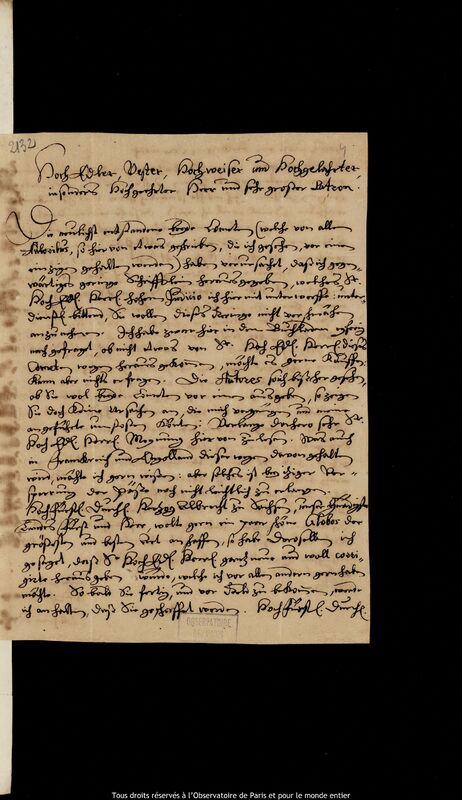 2132
Hoch Edler, Vester, Hochweiser und Hochgelahrter
insonders Hochgeehrter Herr und sehr grosser Patron.
Die neulichst entstandene beyde Cometen (welche von allen
Autoribus, so hiervon etwas geschrieben, die ich gesehen, vor einen
einzigen gehalten werden) haben verursachet, daß ich gegen
wärtigen geringe Schrifften herausgegeben, welches Sr.
Hoch Edl. Herrl. hohen Judicio ich hiermit unterwerffe: unter
dienstl. bittend, Sie wollen dieses Wenige nicht verschmähen
anzunehmen. Ich habe zwar hier in dem Buchladen
nachgefraget, ob nicht etwas von Sr. Hoch Edl. Herrl. dieses
Cometen wegen heraus gekommen, möchte es gerne kauffen:
kann aber nichts erfragen. Die Autores so ich bißher gesehen,
ob Sie wol beyde Cometen vor einen ausgeben, so zeigen
Sie doch keine Ursachen an, die mich vergnügen und meine
angeführte umstossen könten: Verlange derhero sehr Sr.
Hoch Edl. Herrl. Meynung hiervon zu lesen. Was auch
in Franckreich und Engelland dieser wegen davon gehalten
wird, möchte ich gern wissen: aber solches ist bey itziger
Sperrung der Pässe noch nicht leichtlich zu erlangen.
Hochfürstl. Durchl. Herzog Albrecht zu Sachsen, unser gnädigster
Landes Fürst und Herr, wolte gern ein paar schöne Globos der
grössesten und besten Art anschaffen, so habe Deroselben ich
gesaget, daß Sr Hoch Edl. Herrl. ganz neue und woll corri-
girte herausgeben werde, welche ich vor allen andern gern haben
möchte. So bald Sie fertig und vor Geld zu bekommen, werde
ich anhalten, daß Sie geschaffet werden. Hochfürstl. Durchl.
OBSERVATOIRE
Tous droits réservés à l'Observatoire de Paris et pour le monde entier